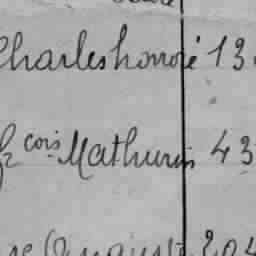 Charles honoré 13
fz cois Mathurin 43
Auguste 204